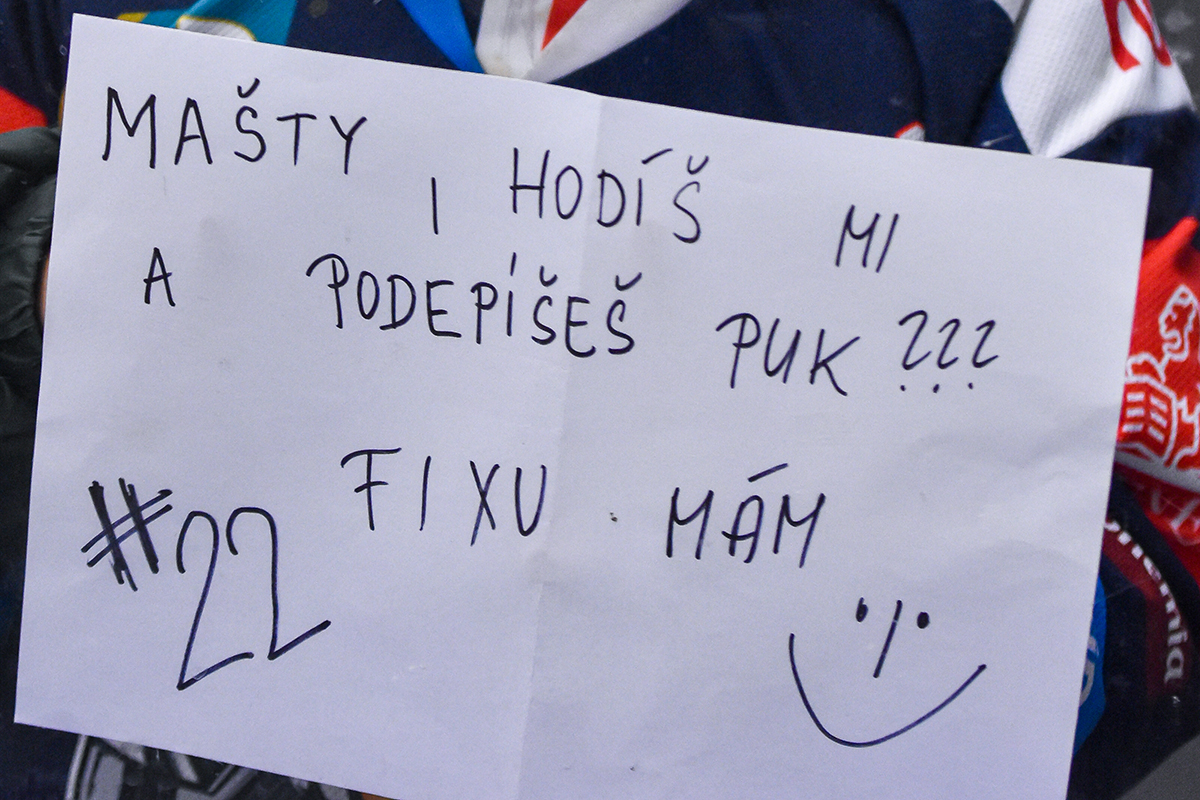 MAŠTY I HODÍŠ MI
A PODEPÍŠEŠ PUK ???
FIXU MÁM
#22